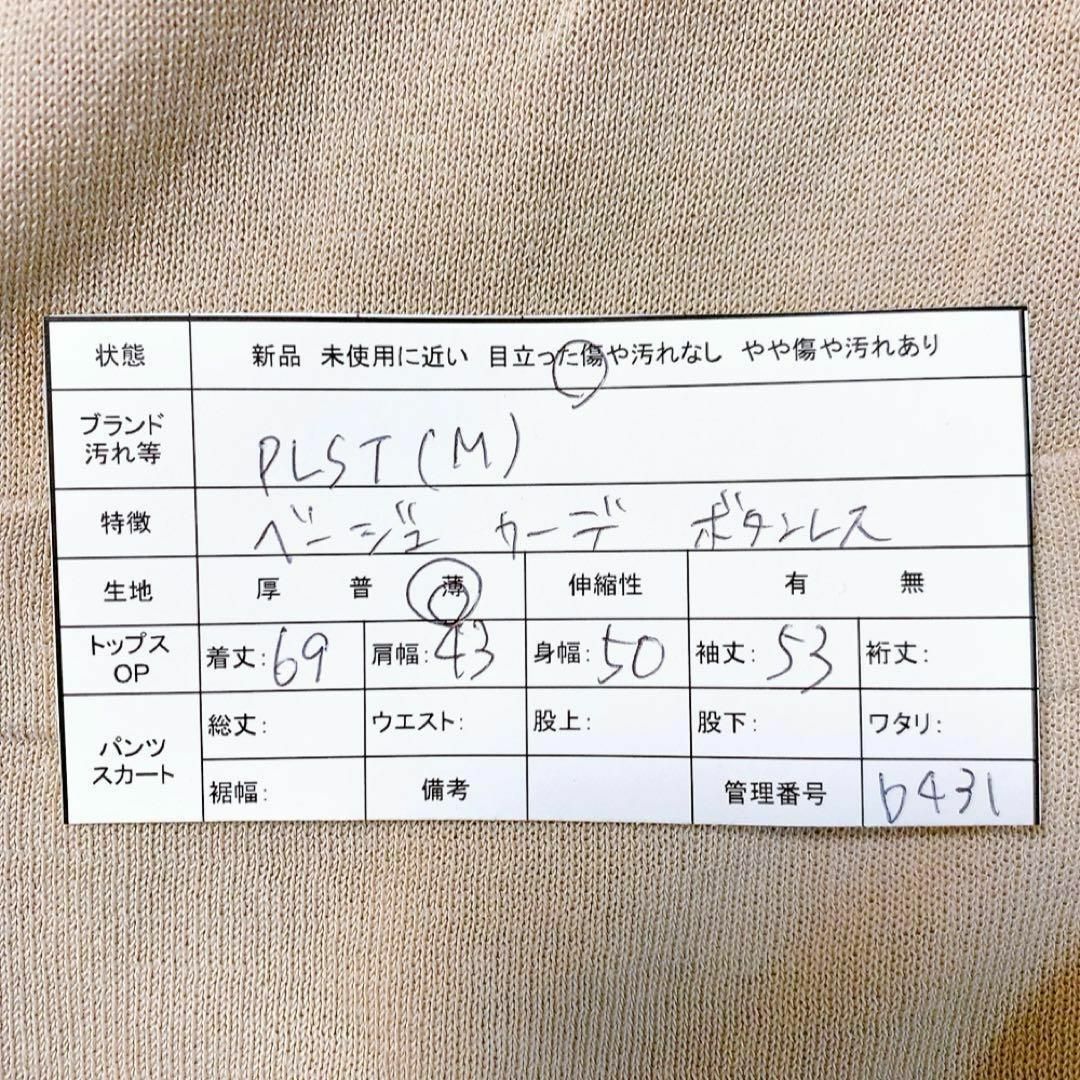 状態 新品 未使用に近い 目立った傷や汚れなし やや傷や汚れあり
ブランド
汚れ等
PLST (M)
特徴 ベージュ カーデ ボタンレス
生地 厚 普 薄 伸縮性 有 無
トップス
OP
着丈: 69 肩幅: 43 身幅: 50 袖丈: 53 裄丈:
パンツ
スカート
総丈: ウエスト: 股上: 股下: ワタリ:
裾幅: 備考 管理番号 b431